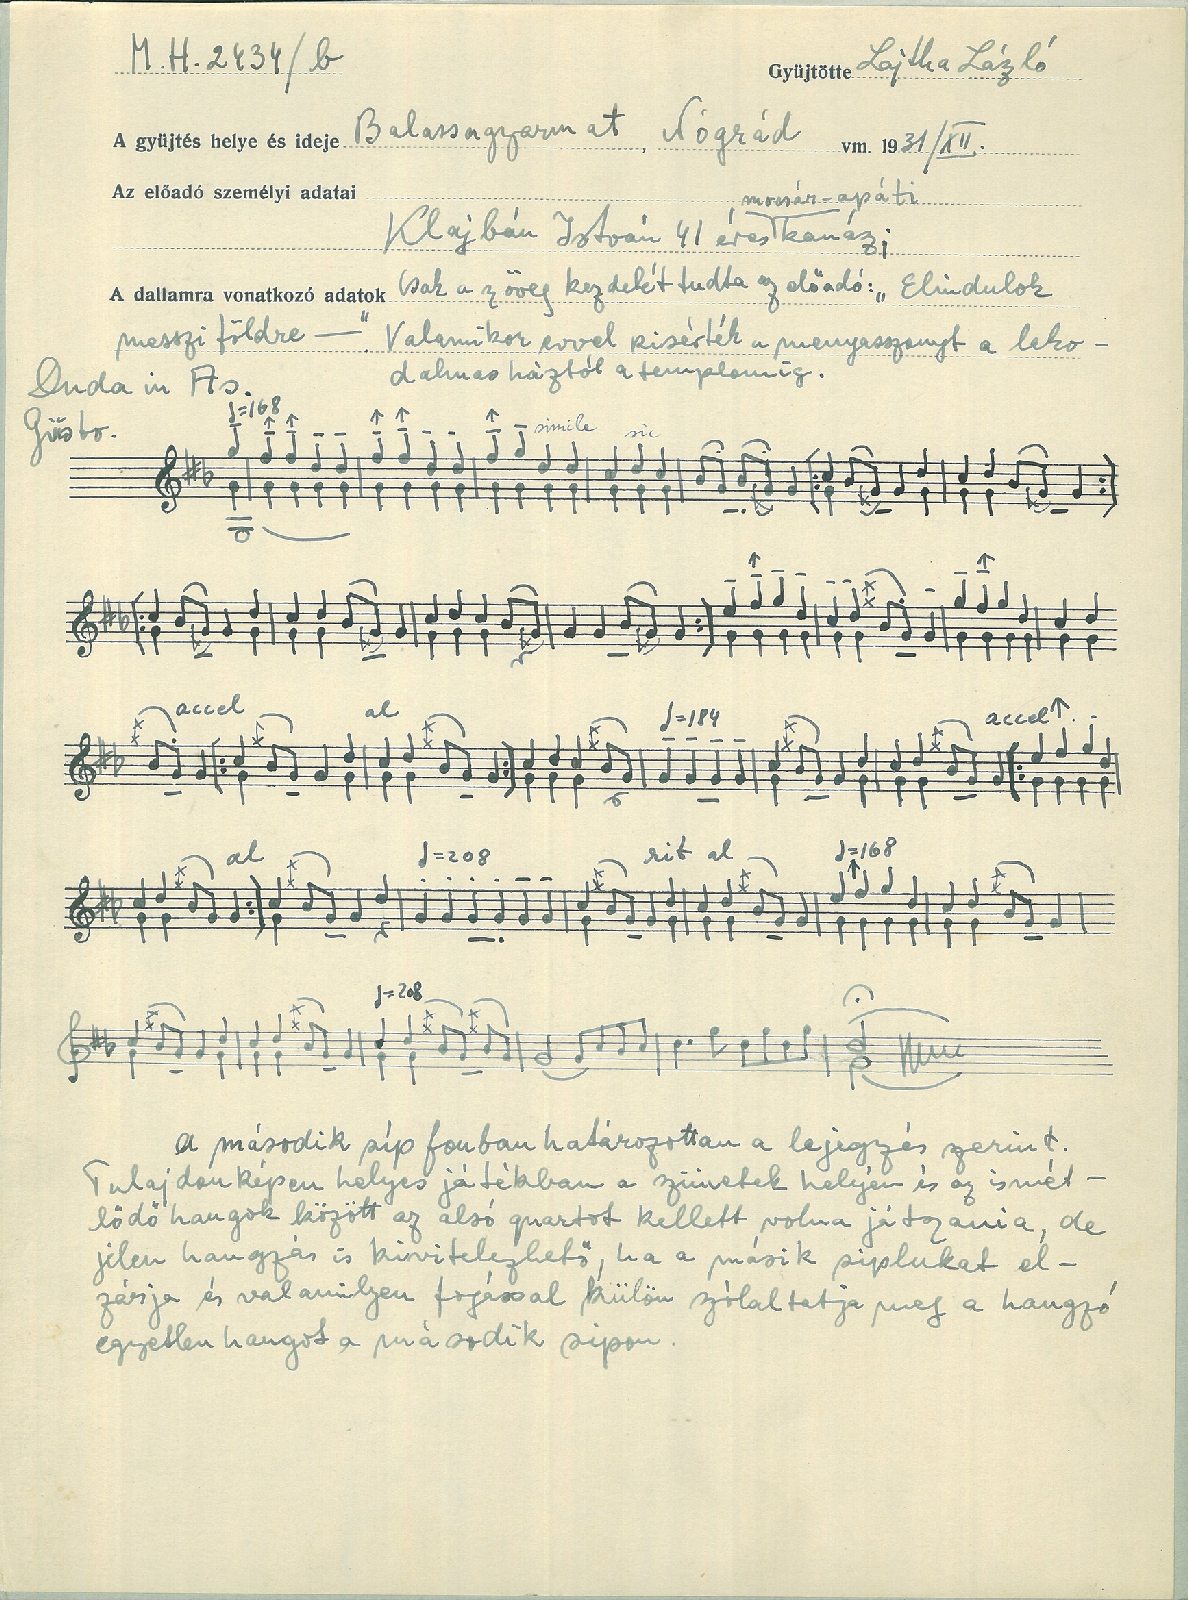 M.H. 2434/b
Gyüjtötte Lajtha László
A gyüjtés helye és ideje Balassagyarmat, Nógrád vm. 1931/XII.
Az előadó személyi adatai
mocsár-apáti
Klajbán István 41 éves kanász
A dallamra vonatkozó adatok Csak a szöveg kezdetét tudta az előadó: „Elindulok
messzi földre —". Valamikor evvel kisérték a menyasszonyt a lako-
dalmas háztól a templomig.
Duda in As.
♩=168
simile
sic
accel
al
♩=184
accel
al
♩=208
rit al
♩=168
♩=208
A második síp fonban határozottan a lejegyzés szerint.
Tulajdonképen helyes játékban a szünetek helyén és az ismét-
lődő hangok között az alsó quartot kellett volna játszania, de
jelen hangzás is kivitelezhető, ha a másik siplukat el-
zárja és valamilyen fogással külön szólaltatja meg a hangzó
egyetlen hangot a második sipon.